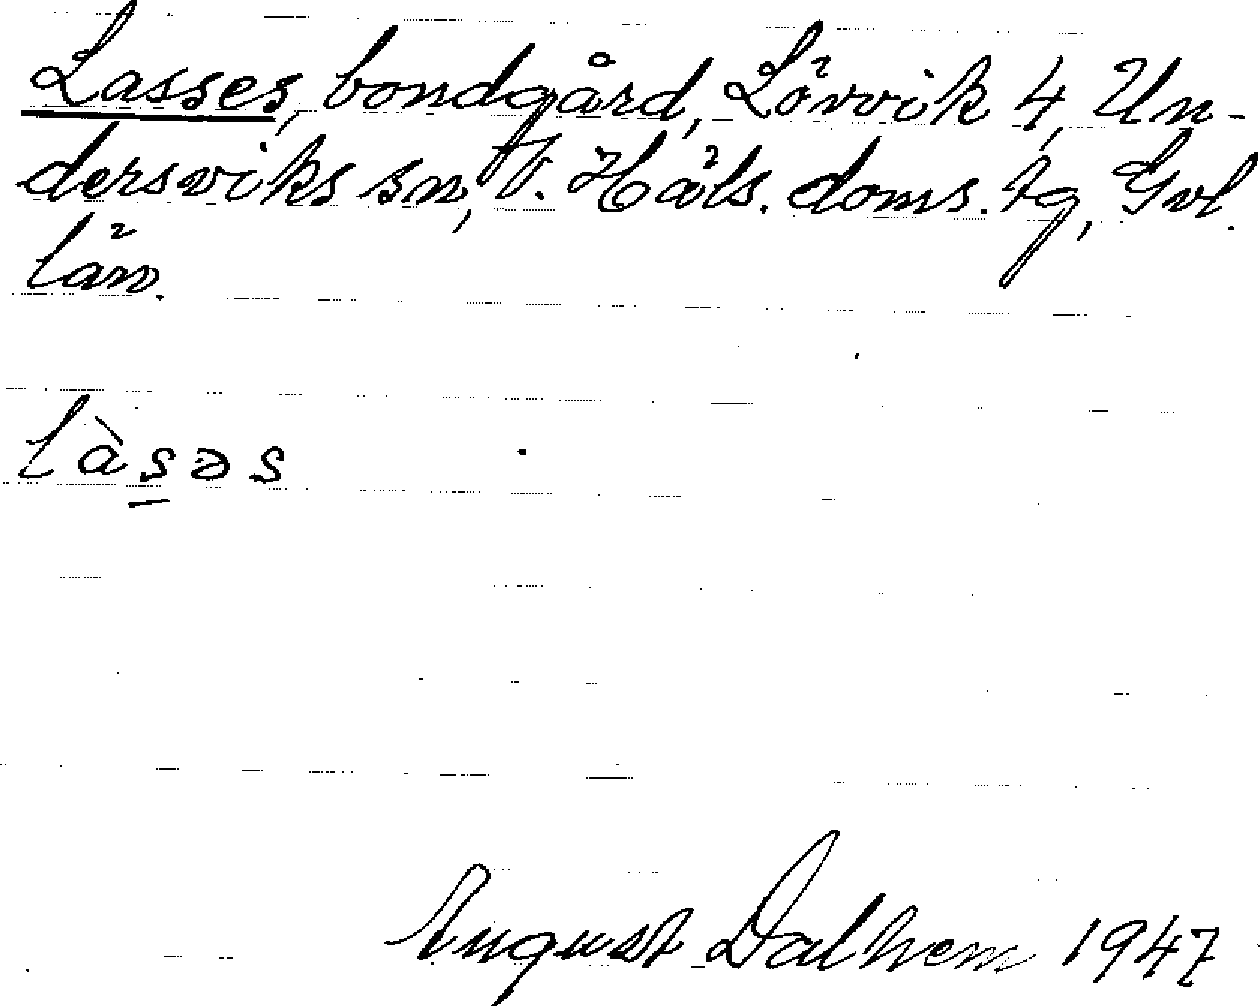 Lasses, bondgård, Lörvik 4, Un-
dersviks sn, V. Häls. doms. tg, Gvl.
län.
làs̲əs
August Dalhem 1947